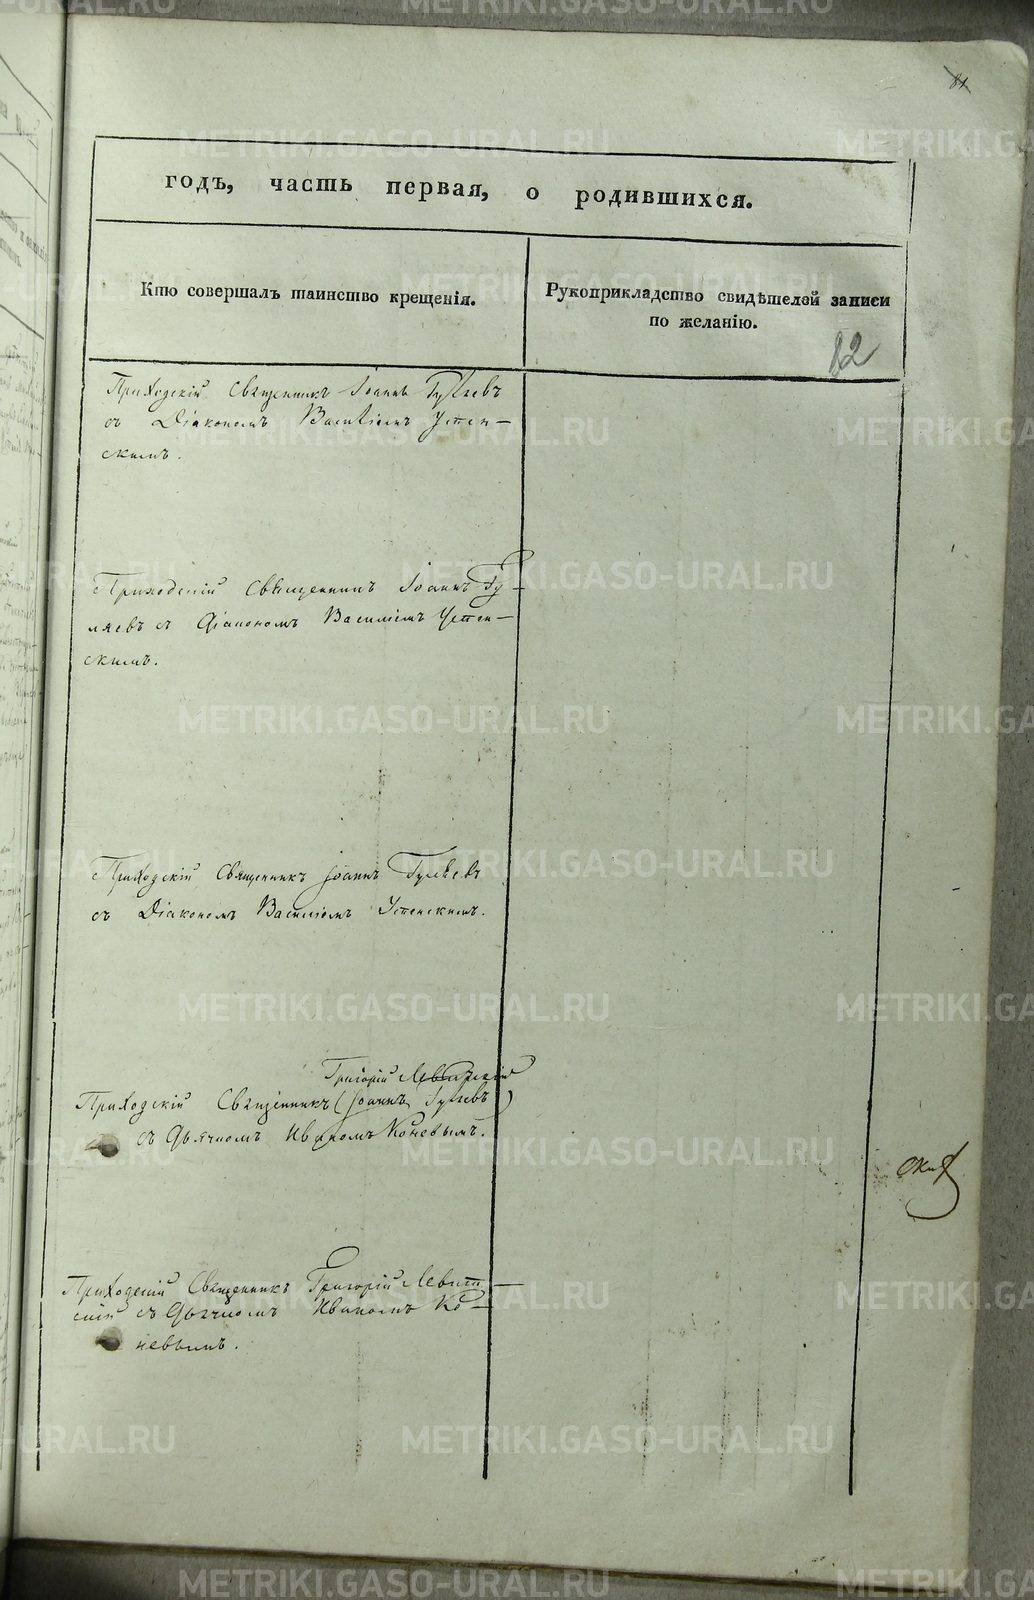 81
годъ, часть первая, о родившихся.
Кто совершалъ таинство крещенія.
Рукоприкладство свидѣтелей записи
по желанію.
82
Приходскій Священникъ Іоаннъ Гуляевъ
съ Діакономъ Василіемъ Успен-
скимъ.
Приходскій Священникъ Іоаннъ Гу-
ляевъ съ Діакономъ Василіемъ Успен-
скимъ.
Приходскій Священникъ Іоаннъ Гуляевъ
съ Діакономъ Василіемъ Успенскимъ.
Григорій Левитскій
Приходскій Священникъ (Іоаннъ Гуляевъ)
съ Дьячкомъ Иваномъ Коневымъ.
Приходскій Священникъ Григорій Левит-
скій съ Дьячкомъ Иваномъ Ко-
невымъ.
METRIKI.GASO-URAL.RU